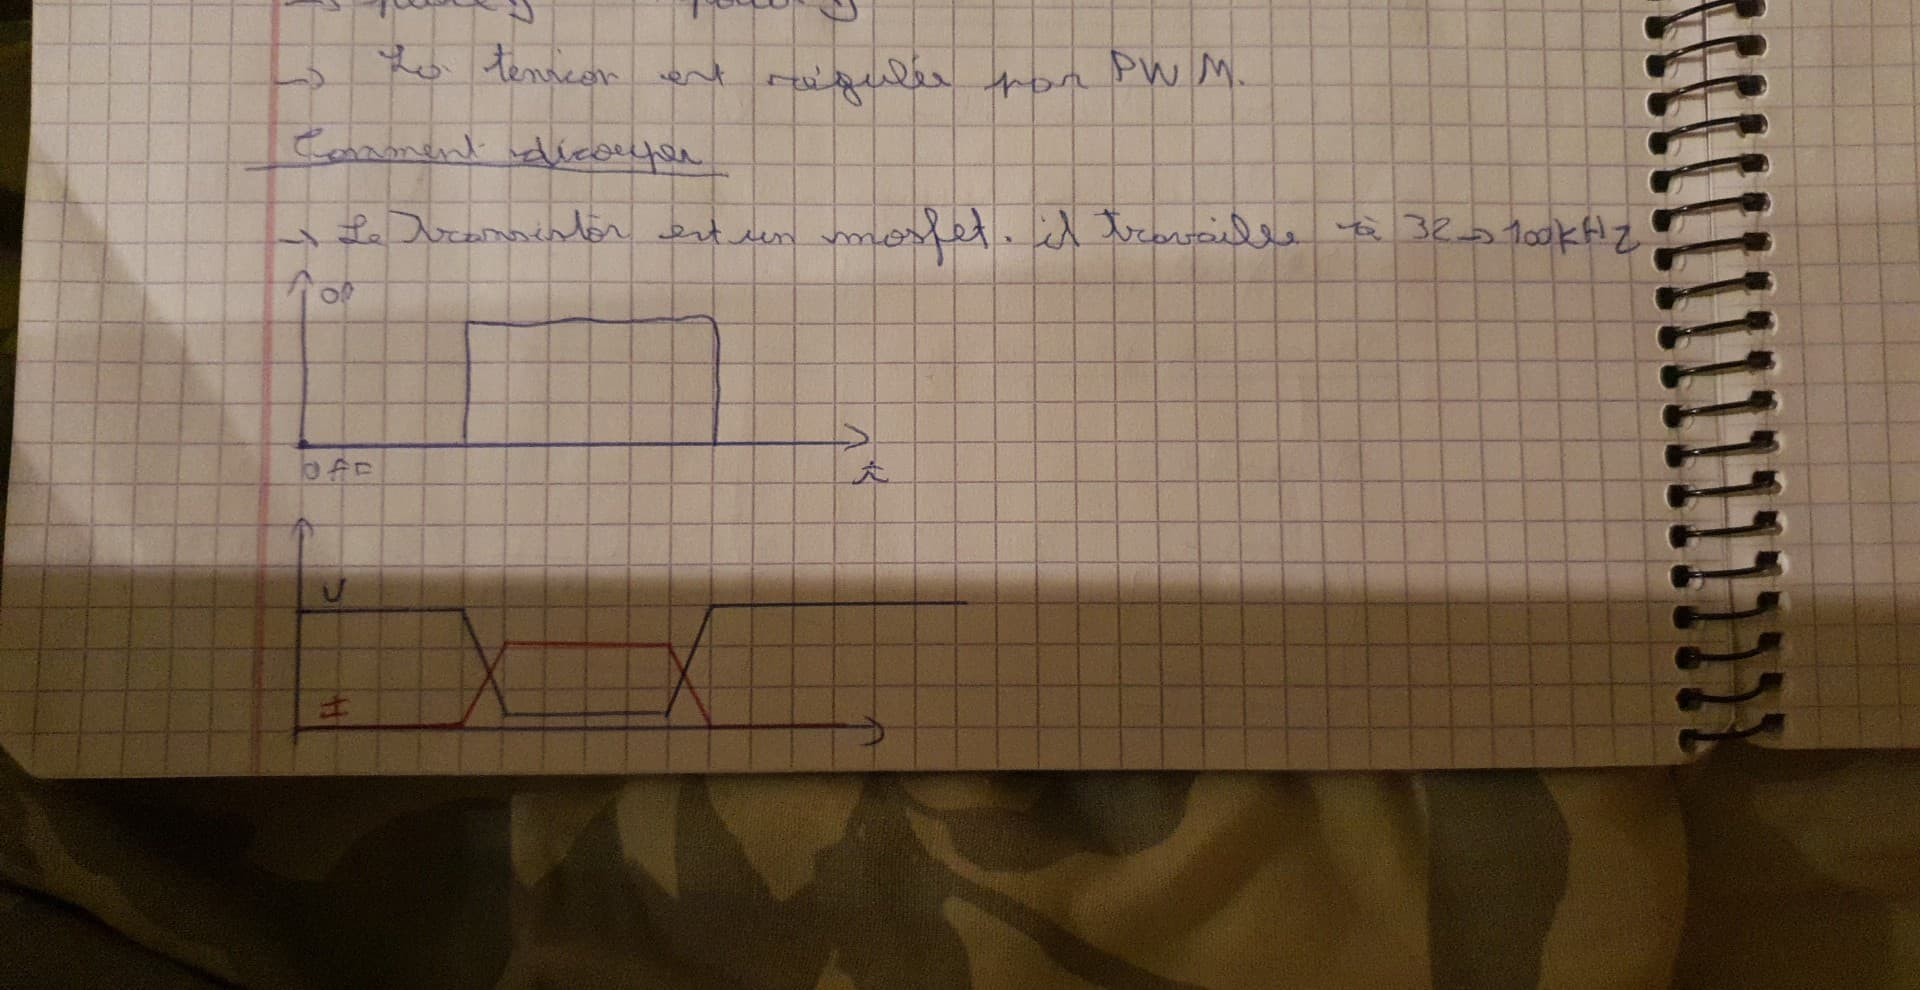 → La tension est régulée par PWM.
Comment découper
→ Le Transistor est un mosfet. il travaille à 32 → 100kHz
ON
OFF
t
U
I